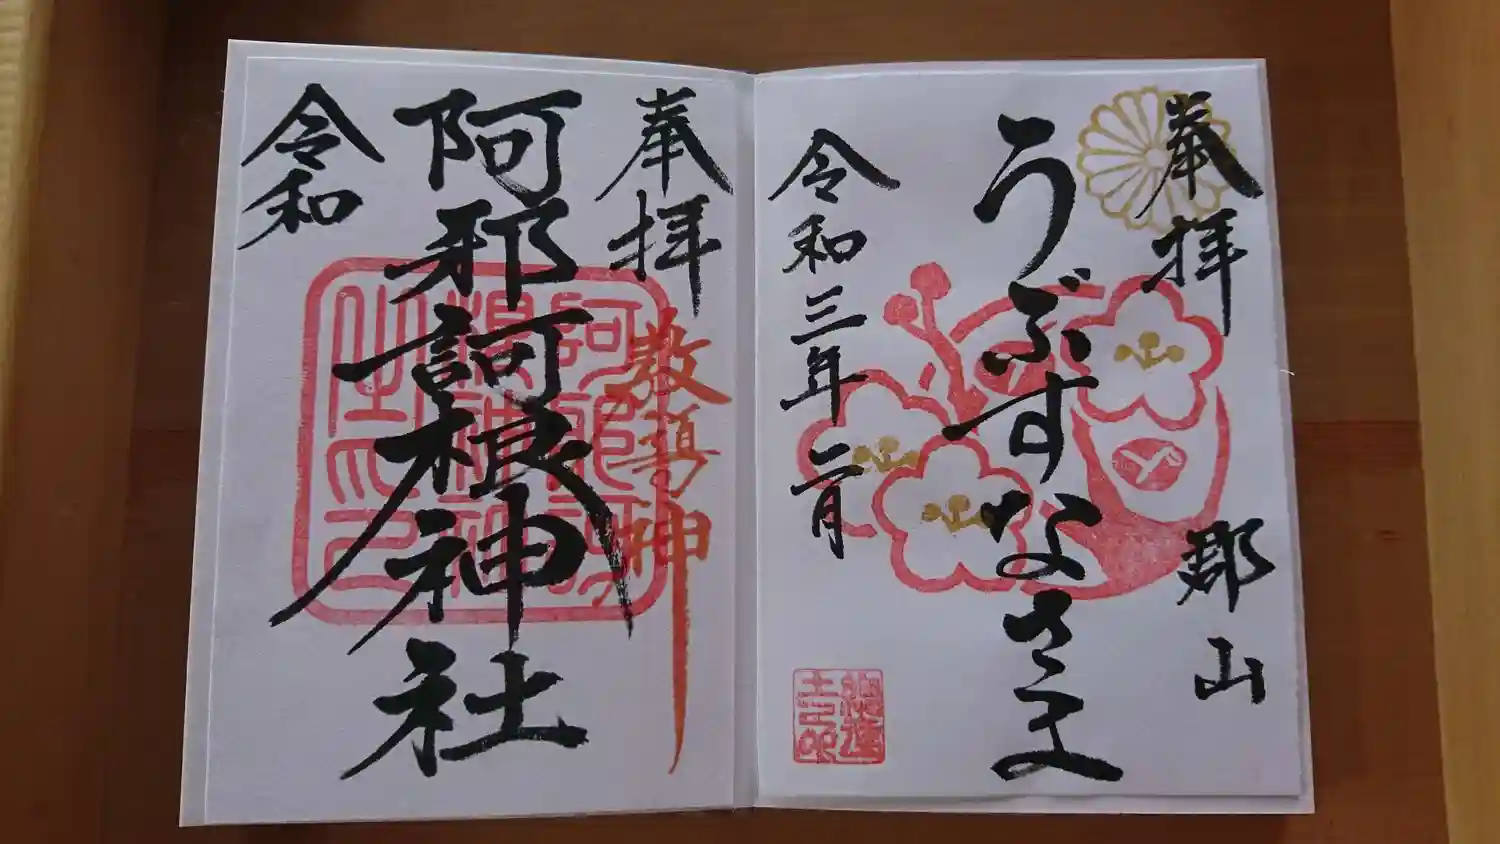 奉拝
郡山
うぶすなさま
令和三年二月
奉拝
阿邪訶根神社
令和